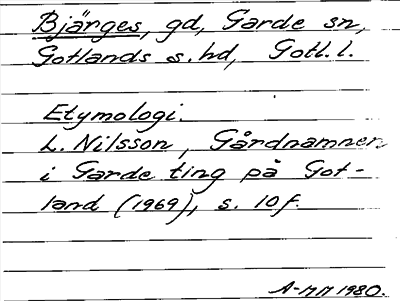 Bjärges, gd, Garde sn,
Gotlands s. hd, Gotl. l.
Etymologi.
L. Nilsson, Gårdnamnen
i Garde ting på Got-
land (1969), s. 10 f.
A-MM 1980.